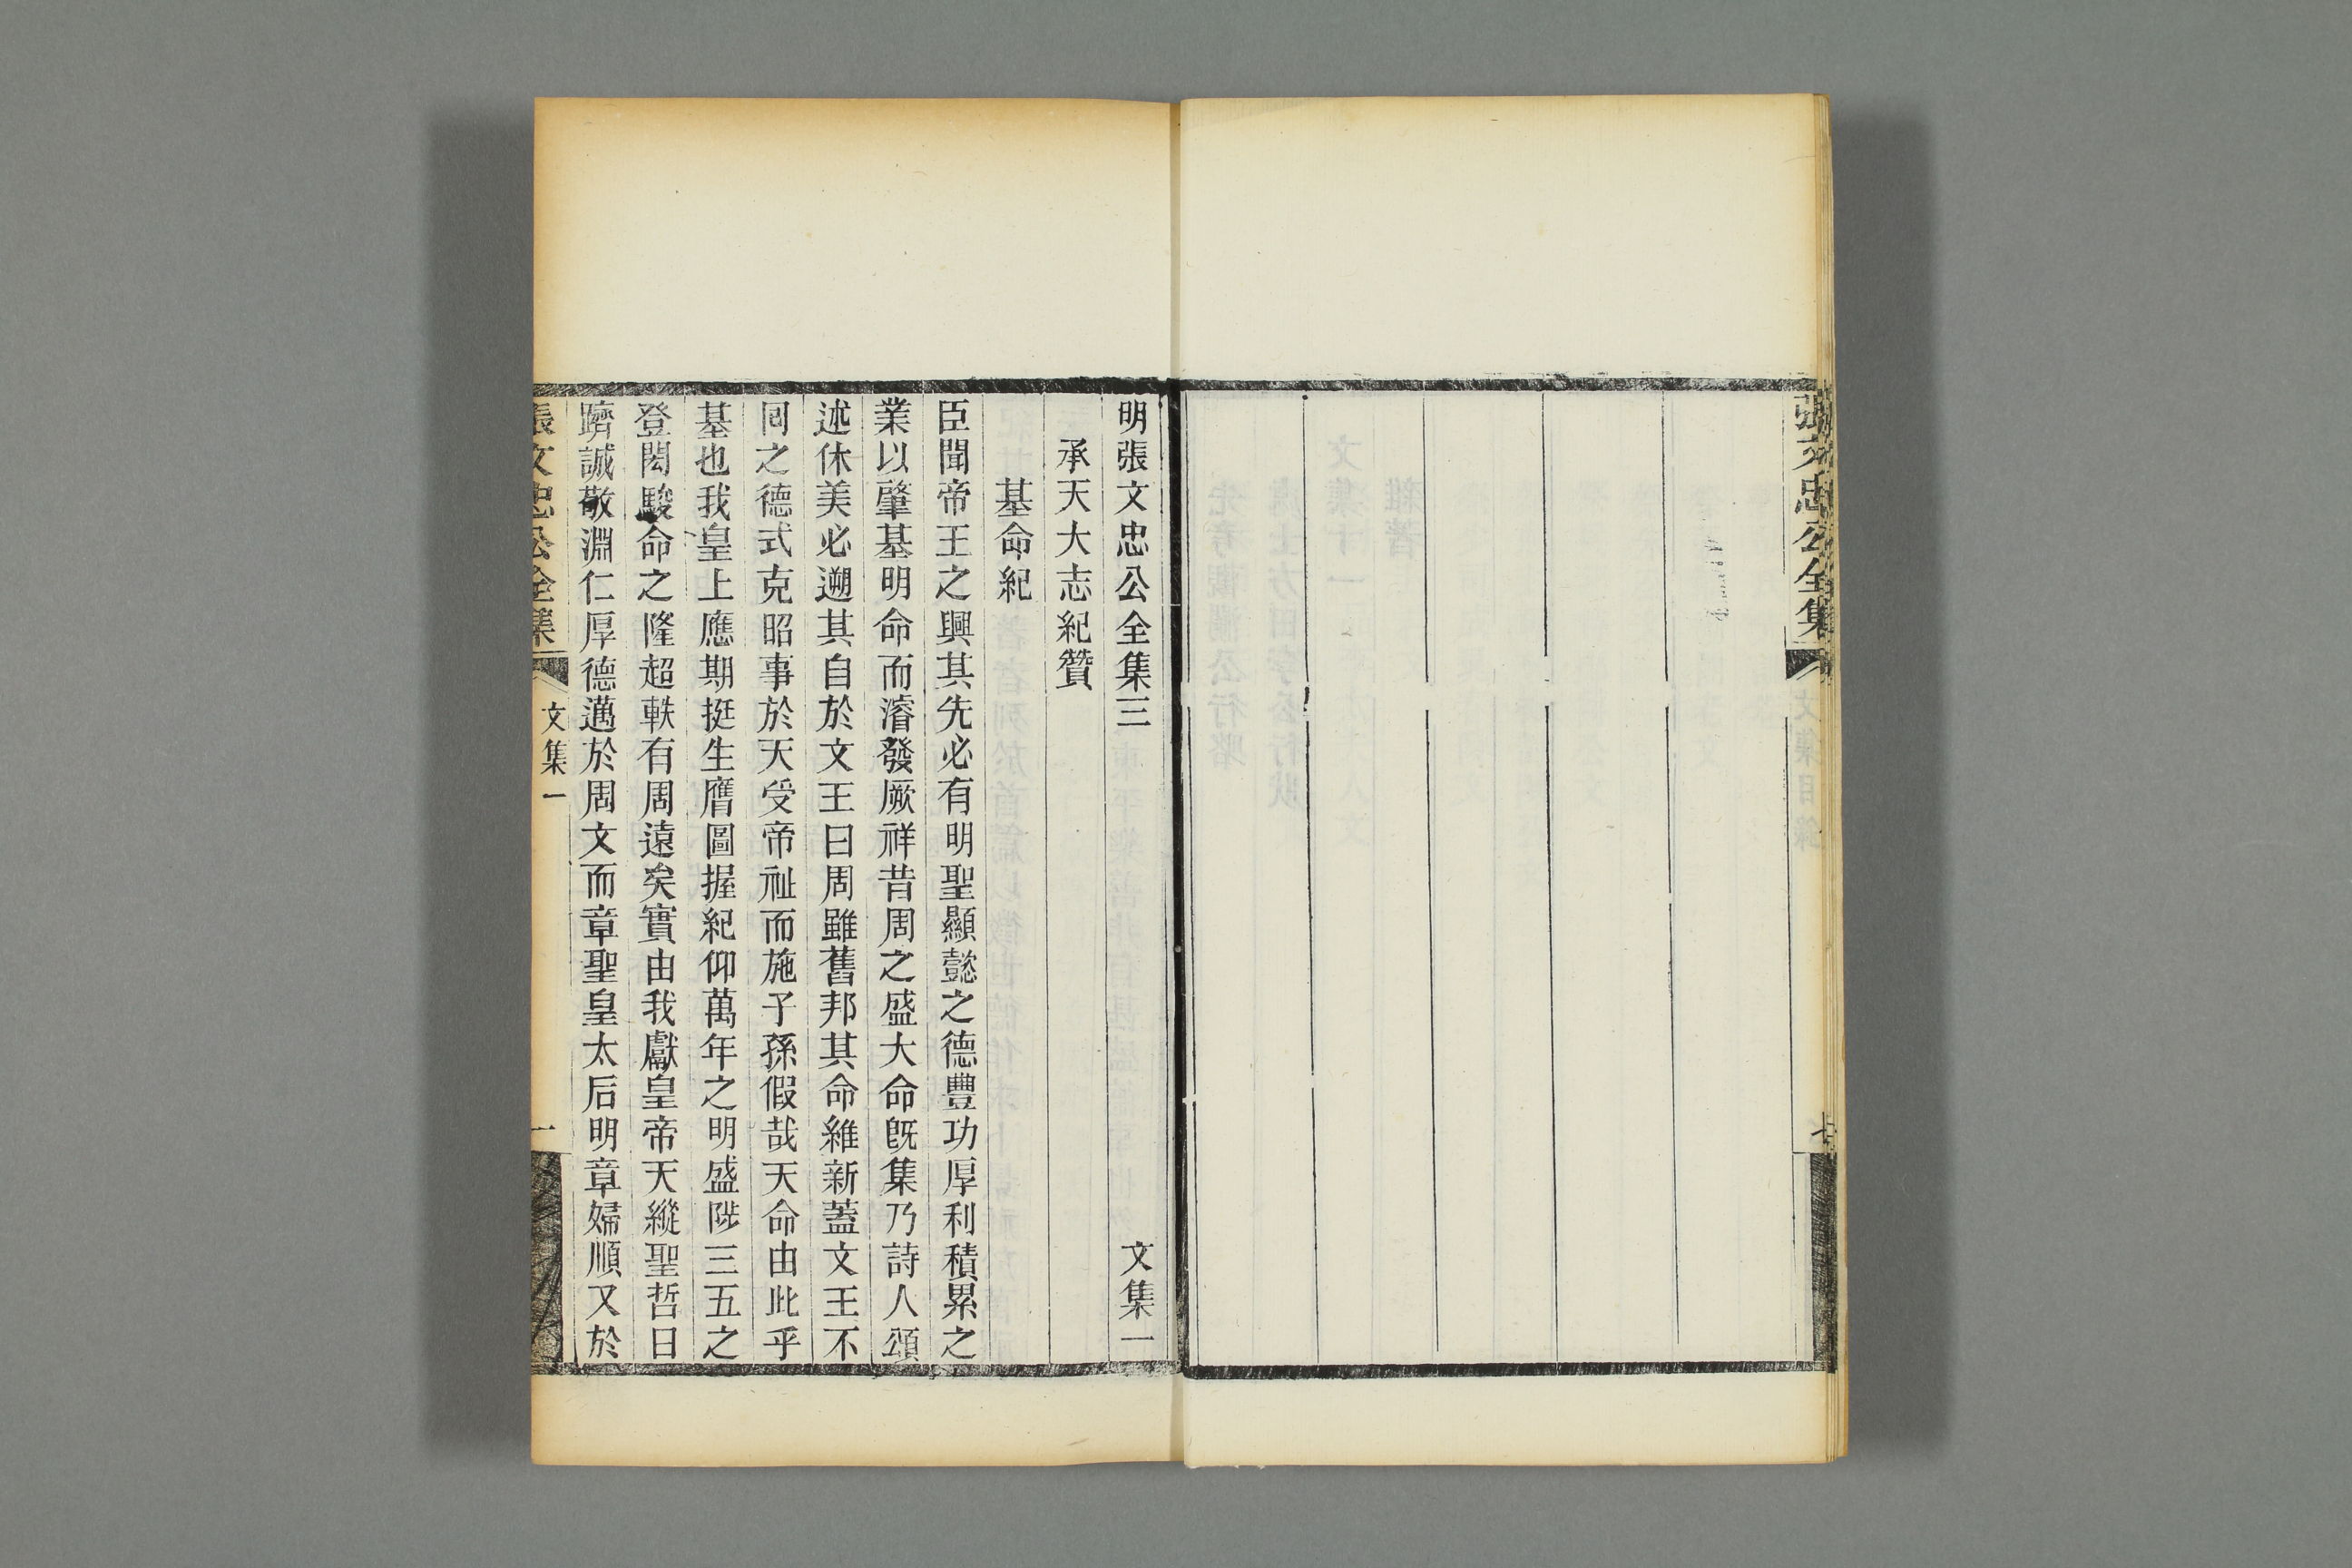 張文忠公全集
七
明張文忠公全集三 文集一
承天大志紀贊
基命紀
臣聞帝王之興其先必有明聖顯懿之德豐功厚利積累之
業以肇基明命而濬發厥祥昔周之盛大命旣集乃詩人頌
述休美必遡其自於文王曰周雖舊邦其命維新蓋文王不
囘之德式克昭事於天受帝祉而施于孫子假哉天命由此乎
基也我皇上應期挺生膺圖握紀仰萬年之明盛陟三五之
登閎駿命之隆超軼有周遠矣實由我獻皇帝天縱聖哲日
躋誠敬淵仁厚德邁於周文而章聖皇太后明章婦順又於
張文忠公全集
文集一
一